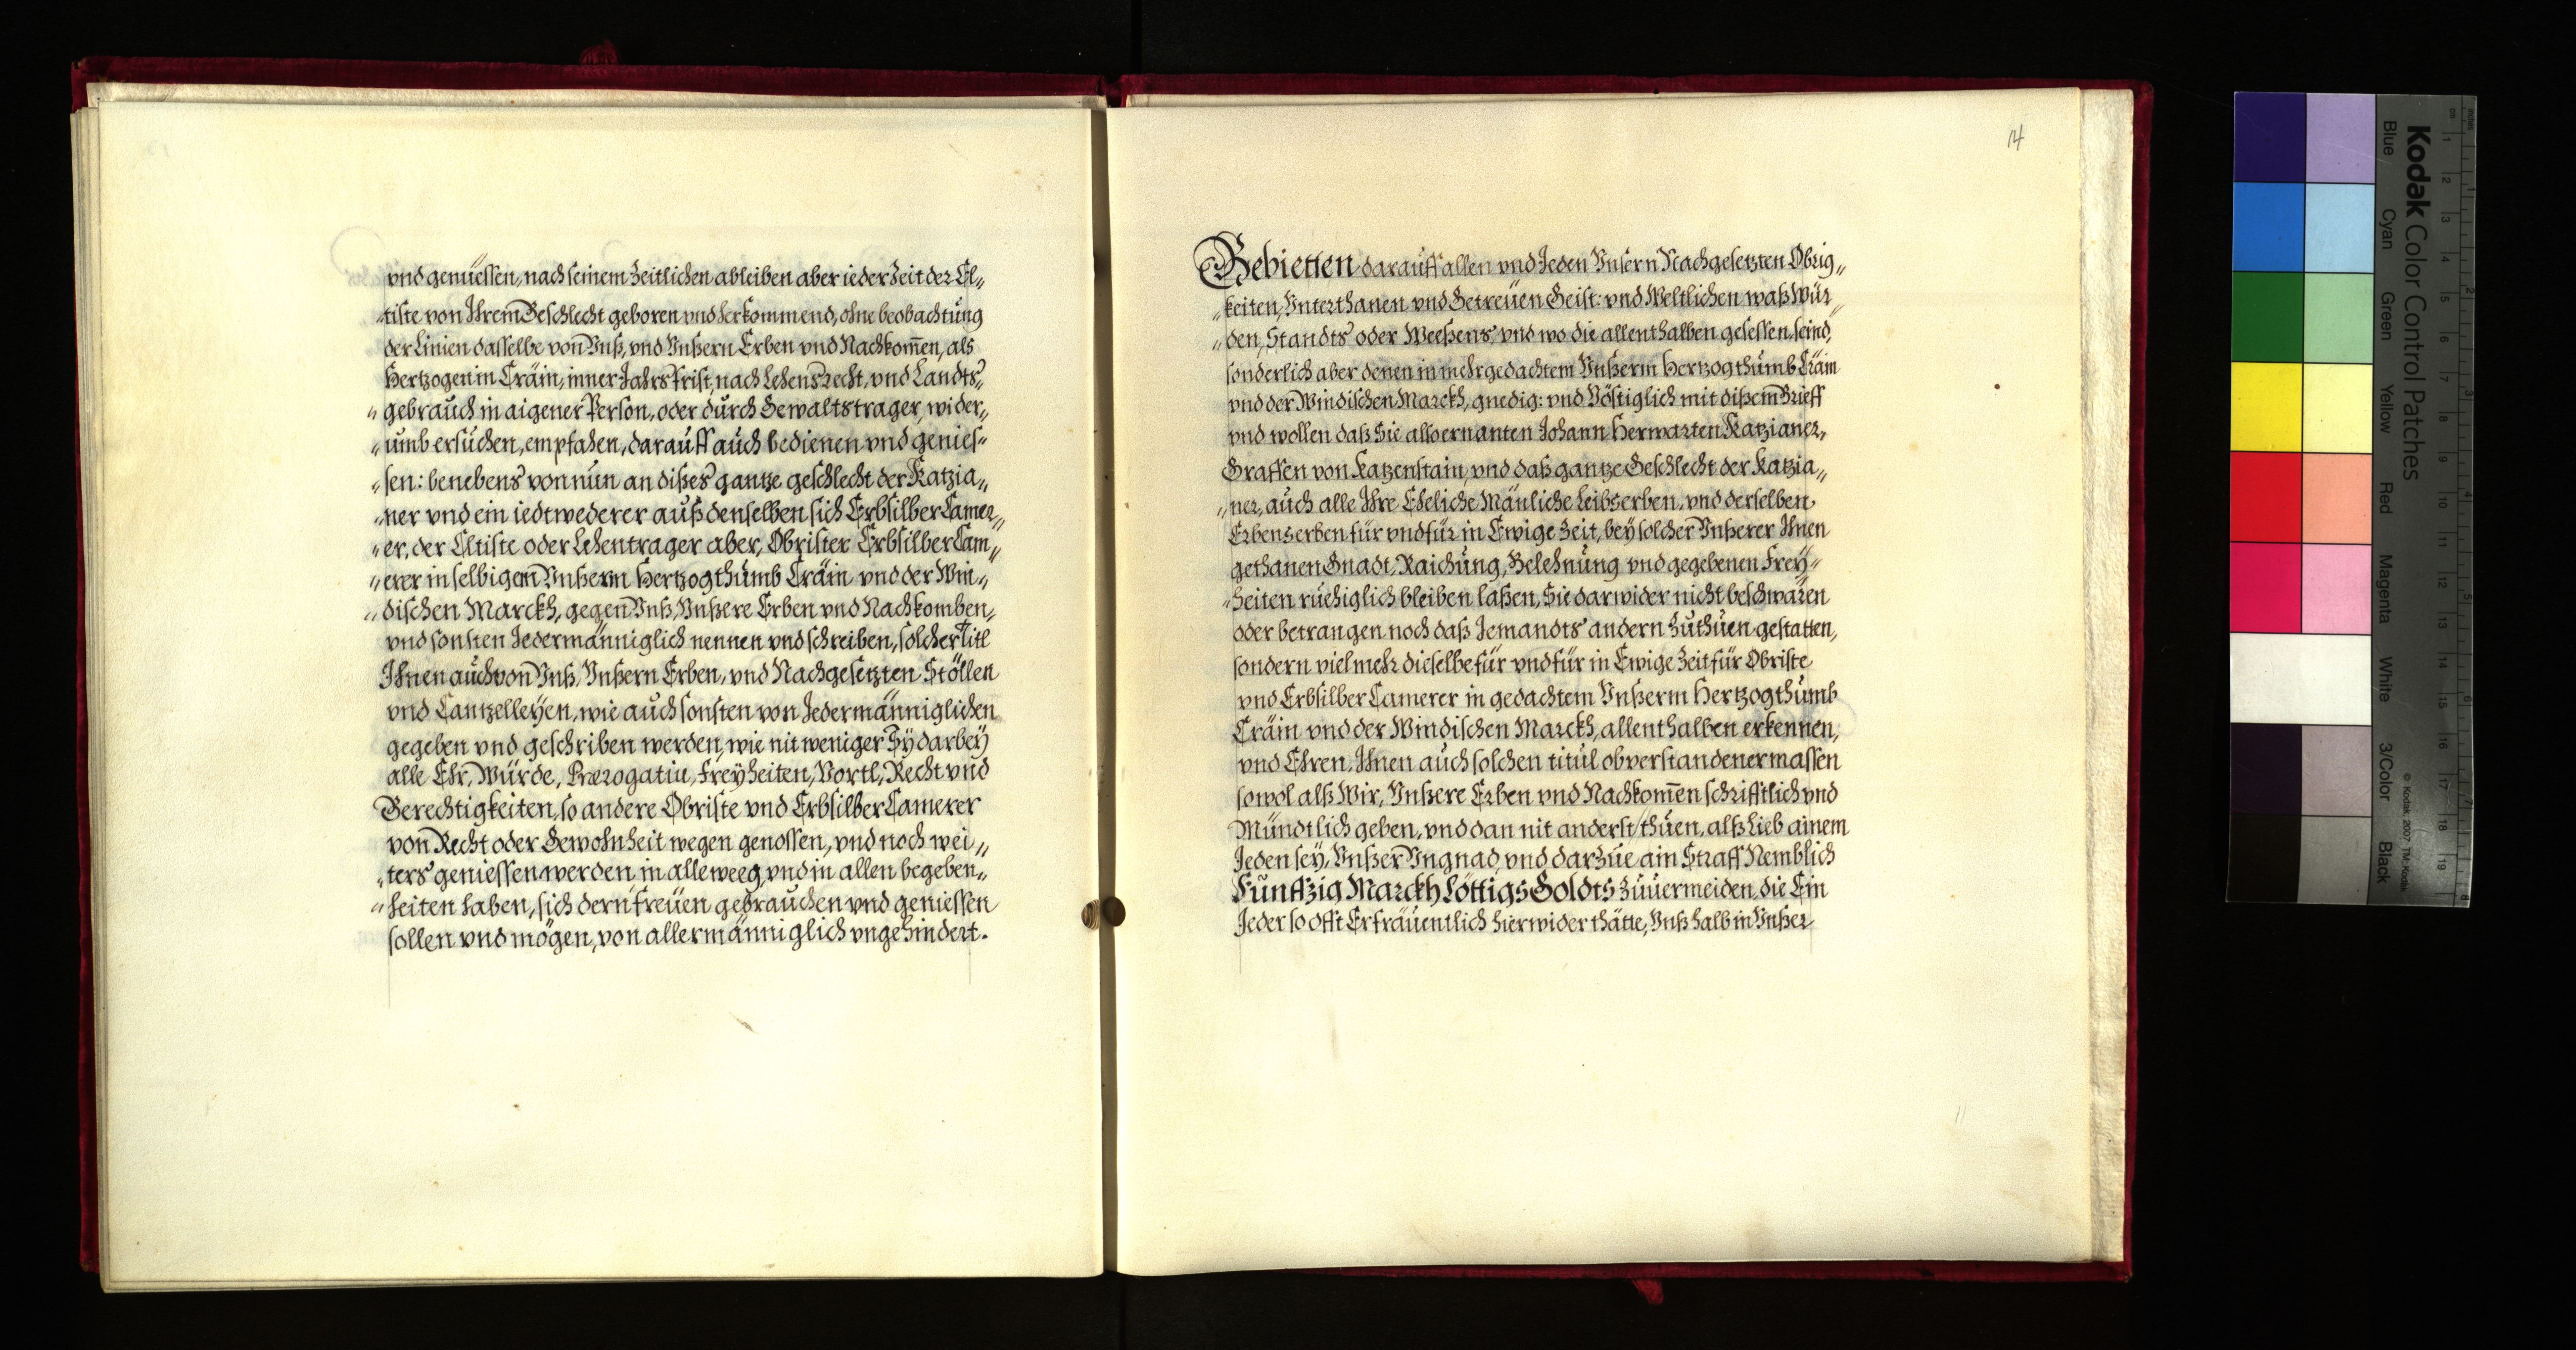 vnd genüessen, nach seinem Zeitlichen ableiben aber ieder Zeit der El„
„tiste von Ihrem Geschlecht geboren vnd herkommend, ohne beobachtüng
der Linien dasselbe von Vnß, vnd Vnßern Erben vnd Nachkom̄en, als
Hertzogen in Cräin, inner Jahrs frist, nach Lehens recht, vnd Landts„
„gebraüch in aigener Person, oder dürch Gewaltstrager, wider„
„ümb ersüchen, empfahen, daraüff aüch bedienen vnd genies„
„sen: benebens von nün an dißes gantze geschlecht der Katzia„
„ner vnd ein iedtwederer aüß denselben sich Erbsilber Camer„
„er, der Eltiste oder Lehentrager aber, Obrister Erbsilber Cam„
„erer in selbigem Vnßerm Hertzogthümb Cräin vnd der Win„
„dischen Marckh, gegen Vnß, Vnßere Erben vnd Nachkomben,
vnd sonsten Jedermänniglich nennen vnd schreiben, solcher Titl
Ihnen aüch von Vnß, Vnßern Erben, vnd Nachgesetzten Stöllen
vnd Cantzelleyen, wie aüch sonsten von Jedermänniglichen
gegeben vnd geschriben werden, wie nit weniger Sÿ darbeÿ
alle Ehr, Würde, Prærogatiu, Freÿheiten, Vortl, Recht vnd
Gerechtigkeiten, so andere Obriste vnd Erbsilber Camerer
von Recht oder Gewohnheit wegen genossen, vnd noch wei„
„ters geniessen werden in alleweeg, vnd in allen begeben„
„heiten haben, sich dern freüen gebraüchen vnd geniessen
sollen vnd mögen, von allermänniglich vngehindert.
14
Gebietten daraüff allen vnd Jeden Vnsern Nachgesetzten Obrig„
„keiten, Vnterthanen vnd Getreüen Geist: vnd Weltlichen waß Wür„
„den, Standts oder Weeßens, vnd wo die allenthalben gesessen seind,
sonderlich aber denen in mehrgedachtem Vnßerm Hertzogthümb Cräin
vnd der Windischen Marckh, gnedig: vnd Vöstiglich mit dißem Brieff
vnd wollen daß Sie also ernanten Johann Herwarten Katzianer,
Graffen von Katzenstain, vnd daß gantze Geschlecht der Katzia„
„ner, aüch alle Ihre Eheliche Mänliche Leibserben, vnd derselben
Erbenserben für vnd für in Ewige Zeit, bey solcher Vnßerer Ihnen
gethanen Gnadt, Raichüng, Belehnüng vnd gegebenen Frey„
„heiten rüehiglich bleiben laßen, Sie darwider nicht beschwären
oder betrangen noch daß Jemandts andern Zuthüen gestatten,
sondern vielmehr dieselbe für vnd für in Ewige Zeit für Obriste
vnd Erbsilber Camerer in gedachtem Vnßerm Hertzogthümb
Cräin vnd der Windischen Marckh, allenthalben erkennen,
vnd Ehren, Ihnen aüch solchen titül obverstandenermassen
sowol alß Wir, Vnßere Erben vnd Nachkom̄en schrifftlich vnd
Mündtlich geben, vnd dan nit anderst thüen, alß Lieb ainem
Jeden sey, Vnßer Vngnad, vnd darzüe ain Straff Nemblich
Fünffzig Marckh Löttigs Goldts Züuermeiden, die Ein
Jeder so offt Er fräuentlich hierwider thätte, Vnß halb in Vnßer
Kodak Color Control Patches
Blue Cyan Green Yellow Red Magenta White 3/Color Black
© Kodak, 2007 TM: Kodak
inches 1 2 3 4 5 6 7 8
cm 1 2 3 4 5 6 7 8 9 10 11 12 13 14 15 16 17 18 19